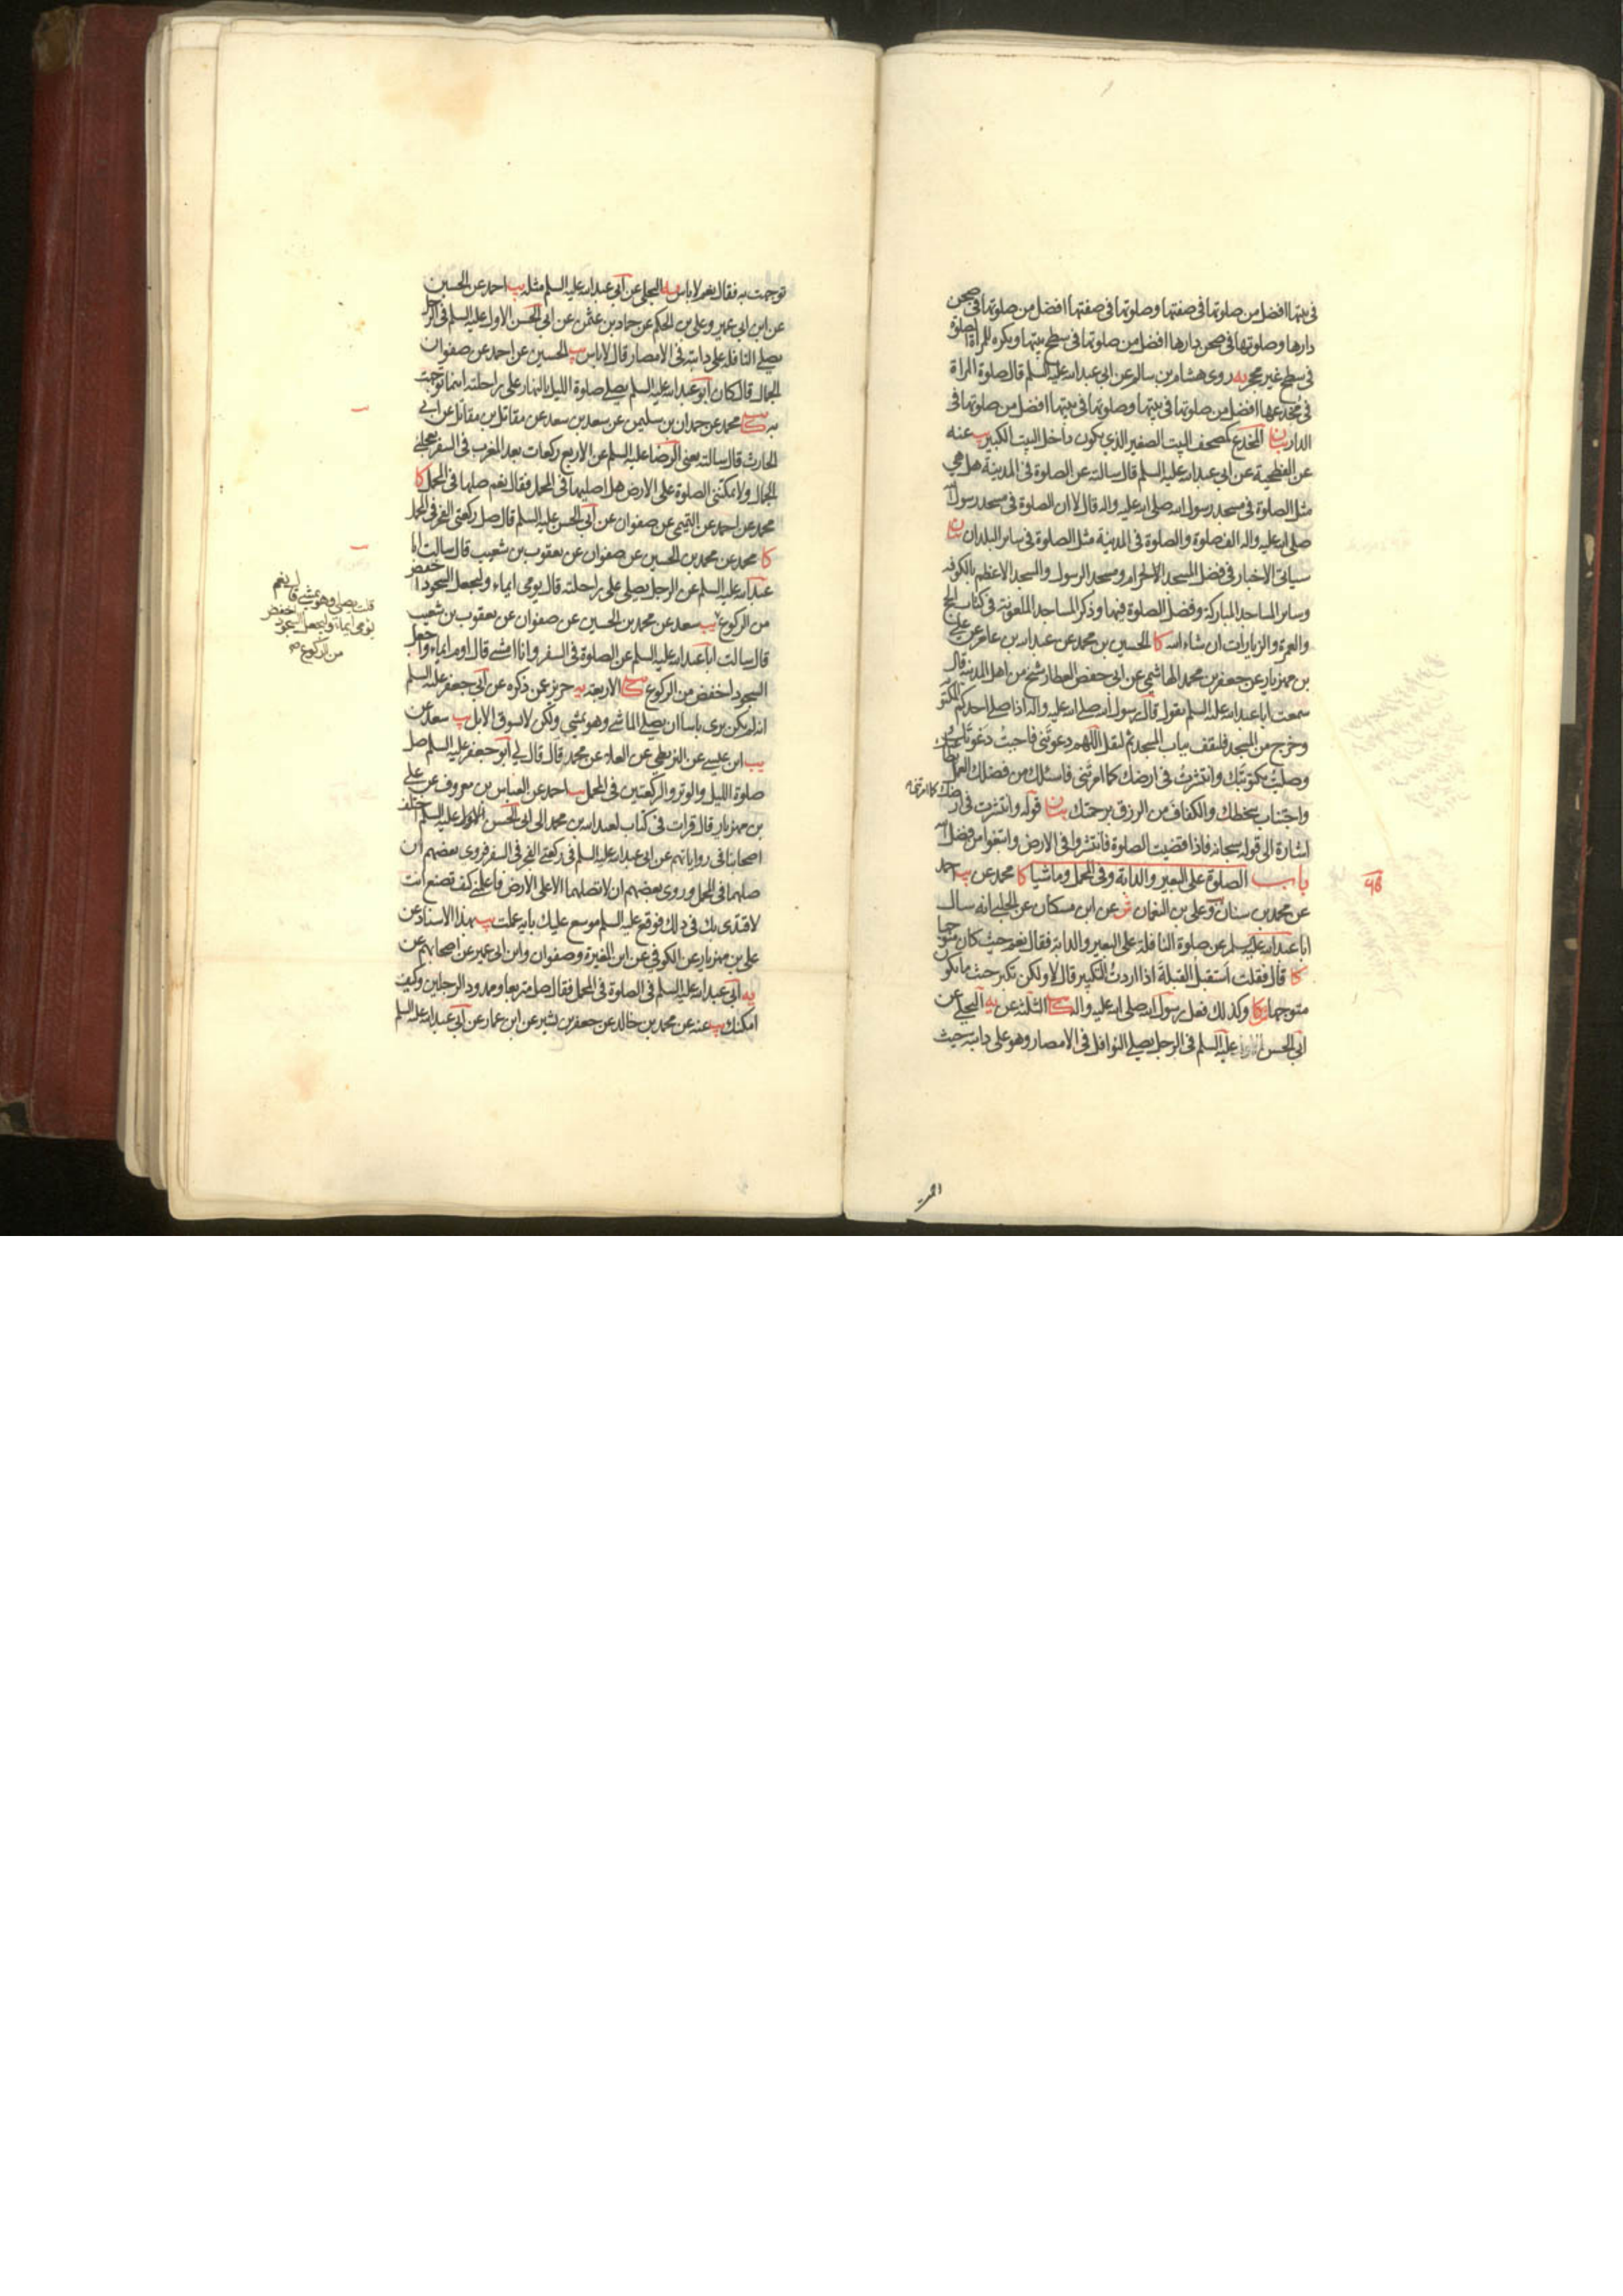 في بيتها افضل من صلوتها في صفتها وصلوتها في صفتها افضل من صلوتها في صحن
دارها وصلوتها في صحن دارها افضل من صلوتها في سطح بيتها ويكره للمراة الصلوة
في سطح غير محجر يه روى هشام بن سالم عن ابي عبدالله عليه السلم قال صلوة المراة
في مخدعها افضل من صلوتها في بيتها وصلوتها في بيتها افضل من صلوتها في
الدار بيان المخدع كمصحف البيت الصغير الذي يكون داخل البيت الكبير يب عنه
عن الفطحية عن ابي عبدالله عليه السلم قال سالته عن الصلوة في المدينة هل هي
مثل الصلوة في مسجد رسول الله صلى الله عليه واله قال لا ان الصلوة في مسجد رسول الله
صلى الله عليه واله الف صلوة والصلوة في المدينة مثل الصلوة في ساير البلدان بيان
سياتي الاخبار في فضل المسجد الحرام ومسجد الرسول والمسجد الاعظم بالكوفه
وساير المساجد المباركة وفضل الصلوة فيها وذكر المساجد الملعونة في كتاب الحج
والعمرة والزيارات ان شاء الله كا الحسين بن محمد عن عبدالله بن عامر عن علي
بن مهزيار عن جعفر بن محمد الهاشمي عن ابي حفص العطار شيخ من اهل المدينة قال
سمعت ابا عبدالله عليه السلم يقول قال رسول الله صلى الله عليه واله اذا صلى احدكم المكتوبه
وخرج من المسجد فليقف بباب المسجد ثم ليقل اللهم دعوتني فاجبت دعوتك
وصليت مكتوبتك وانتشرت في ارضك كما امرتني فاسئلك من فضلك العمل بطاعتك
واجتناب سخطك والكفاف من الرزق برحمتك بيان قوله وانتشرت في ارضك كما امرتني
اشارة الى قوله سبحانه فاذا قضيت الصلوة فانتشروا في الارض وابتغوا من فضل الله
باب الصلوة على البعير والدابة وفي المحمل وماشيا كا محمد عن يب احمد
٩٥
عن محمد بن سنان وعلي بن النعمان ش عن ابن مسكان عن الحلبي انه سال
ابا عبدالله عليه السلم عن صلوة النافلة على البعير والدابة فقال نعم حيث كان متوجها
كا قال فقلت استقبل القبلة اذا اردت التكبير قال لا ولكن تكبر حيث ما تكون
متوجها كا وكذلك فعل رسول الله صلى الله عليه واله كا الثلثة عن يه البجلي عن
ابي الحسن عليه السلم في الرجل يصلي النوافل في الامصار وهو على دابته حيث
توجهت به فقال نعم لا باس يه البجلي عن ابي عبدالله عليه السلم مثله يب احمد عن الحسين
عن ابن ابي عمير وعلي بن الحكم عن حماد بن عثمن عن ابي الحسن الاول عليه السلم في الرجل
يصلي النافلة على دابته في الامصار قال لا باس يب الحسين عن احمد عن صفوان
الجمال قال كان ابو عبدالله عليه السلم يصلي صلوة الليل بالنهار على راحلته اينما توجهت
به محمد عن حمدان بن سليمن عن سعد بن سعد عن مقاتل بن مقاتل عن ابي
الحارث قال سالته يعني الرضا عليه السلم عن الاربع ركعات بعد المغرب في السفر يعجلني
الجمال ولا يمكنني الصلوة على الارض هل اصليها في المحمل فقال نعم صلها في المحمل كا
محمد عن احمد عن التميمي عن صفوان عن ابي الحسن عليه السلم قال صل ركعتي الفجر في المحمل
كا محمد عن محمد بن الحسين عن صفوان عن يعقوب بن شعيب قال سالت ابا
عبدالله عليه السلم عن الرجل يصلي على راحلته قال يومي ايماء وليجعل السجود اخفض
قلت يصلي وهو يمشي قال نعم
يومي ايماء وليجعل السجود اخفض
من الركوع صح
من الركوع يب سعد عن محمد بن الحسين عن صفوان عن يعقوب بن شعيب
قال سالت ابا عبدالله عليه السلم عن الصلوة في السفر وانا امشي قال اوم ايماء واجعل
السجود اخفض من الركوع كا الاربعة يه حريز عمن ذكره عن ابي جعفر عليه السلم
انه لم يكن يرى باسا ان يصلي الماشي وهو يمشي ولكن لا يسوق الابل يب سعد عن
يب ابن عيسى عن البزنطي عن العلاء عن محمد قال قال لي ابو جعفر عليه السلم صل
صلوة الليل والوتر والركعتين في المحمل يب احمد عن العباس بن معروف عن علي
بن مهزيار قال قرات في كتاب لعبدالله بن محمد الى ابي الحسن عليه السلم اختلف
اصحابنا في رواياتهم عن ابي عبدالله عليه السلم في ركعتي الفجر في السفر فروى بعضهم ان
صلهما في المحمل وروى بعضهم ان لا تصلهما الا على الارض فاعلمني كيف تصنع انت
لاقتدي بك في ذلك فوقع عليه السلم موسع عليك باية عملت يب بهذا الاسناد عن
علي بن مهزيار عن الكوفي عن ابن المغيرة وصفوان وابن ابي عمير عن اصحابهم عن
يه ابي عبدالله عليه السلم في الصلوة في المحمل فقال صل متربعا وممدود الرجلين وكيف
امكنك يب عنه عن محمد بن خالد عن جعفر بن بشير عن ابن عمار عن ابي عبدالله عليه السلم